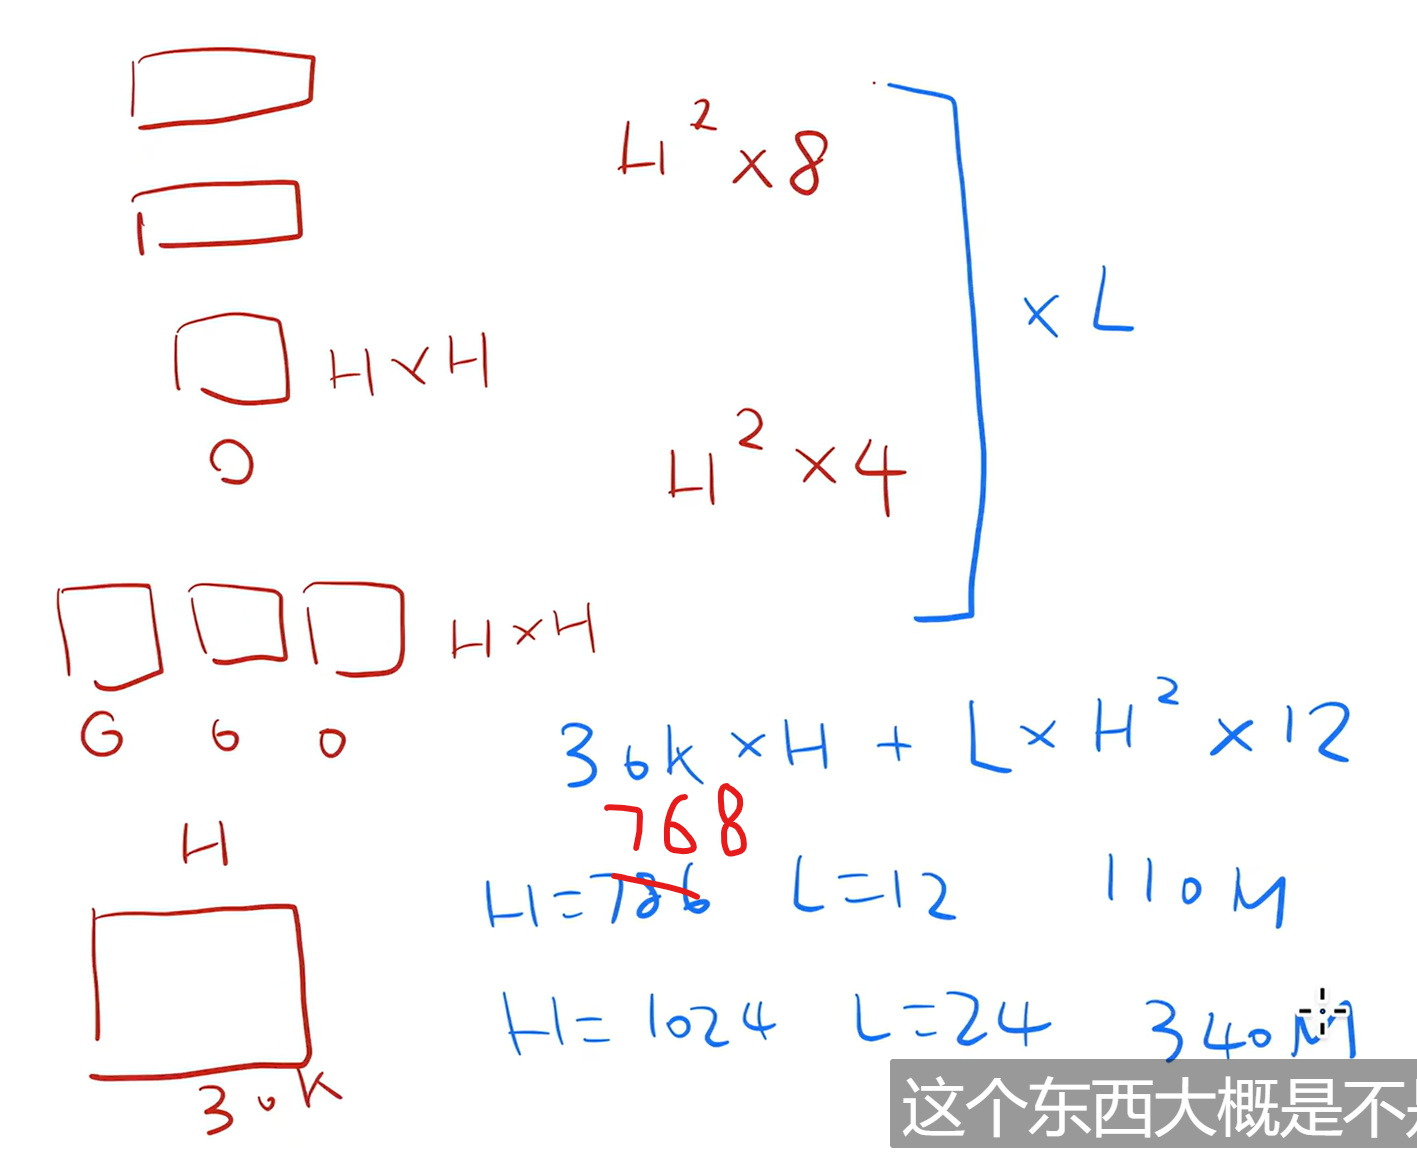 H² × 8
× L
H × H
O
H² × 4
H × H
G 6 0
30K × H + L × H² × 12
768
H
H = 786 L = 12 110M
H = 1024 L = 24 340M
30K
这个东西大概是不